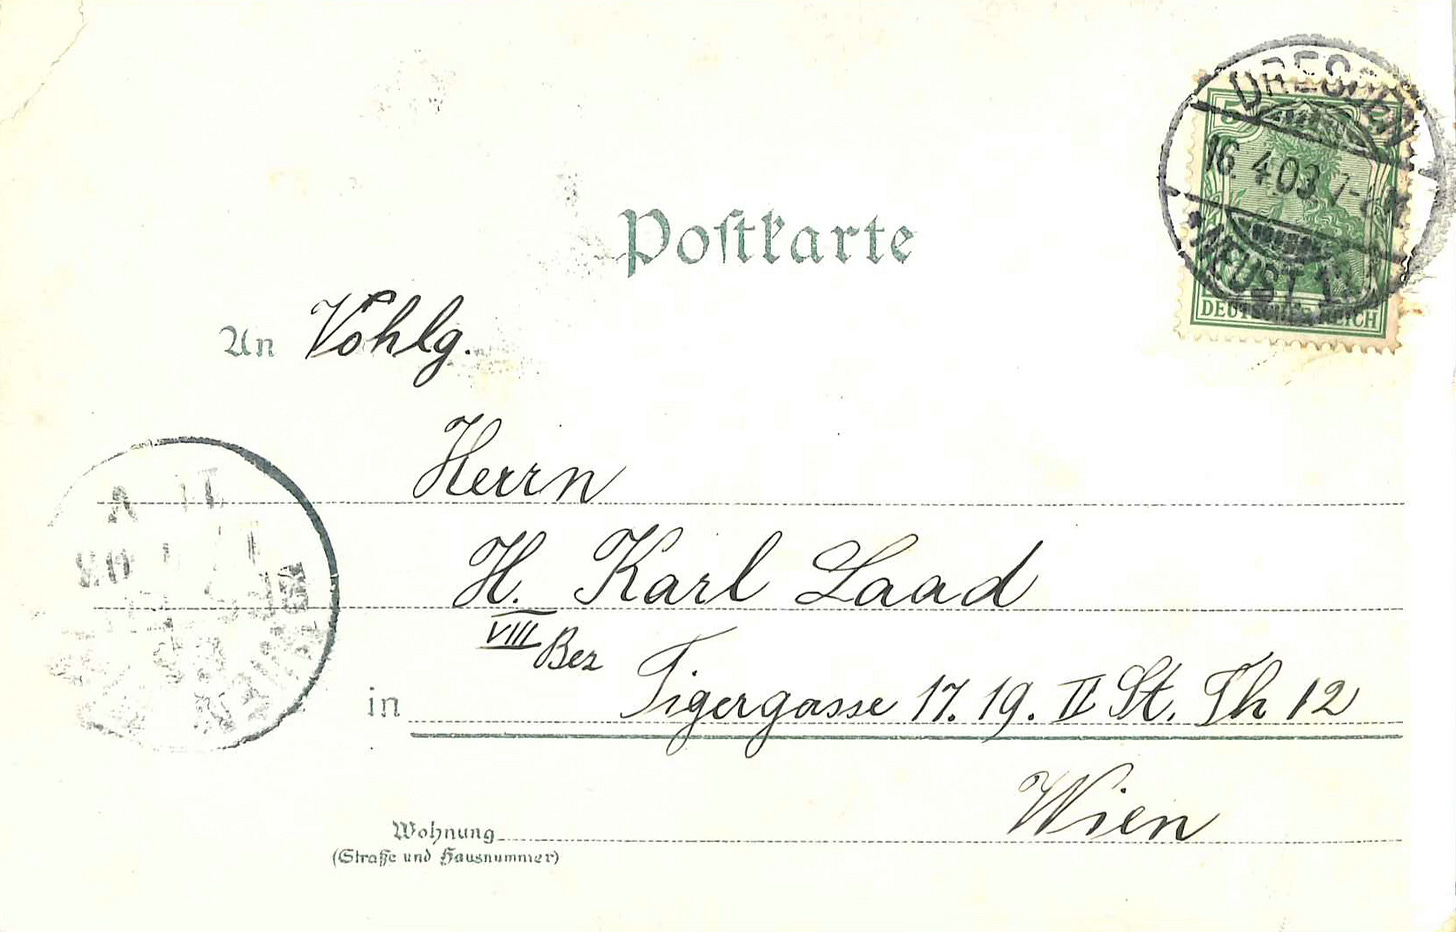 Postkarte
DRESDEN
16. 4. 03. 7-
* NEUST.
5
DEUTSCHES REICH
An Vohlg.
Herrn
H. Karl Laad
VIII Bez
in Tigergasse 17. 19. II St. Th 12
Wien
Wohnung
(Straße und Hausnummer)
WIEN